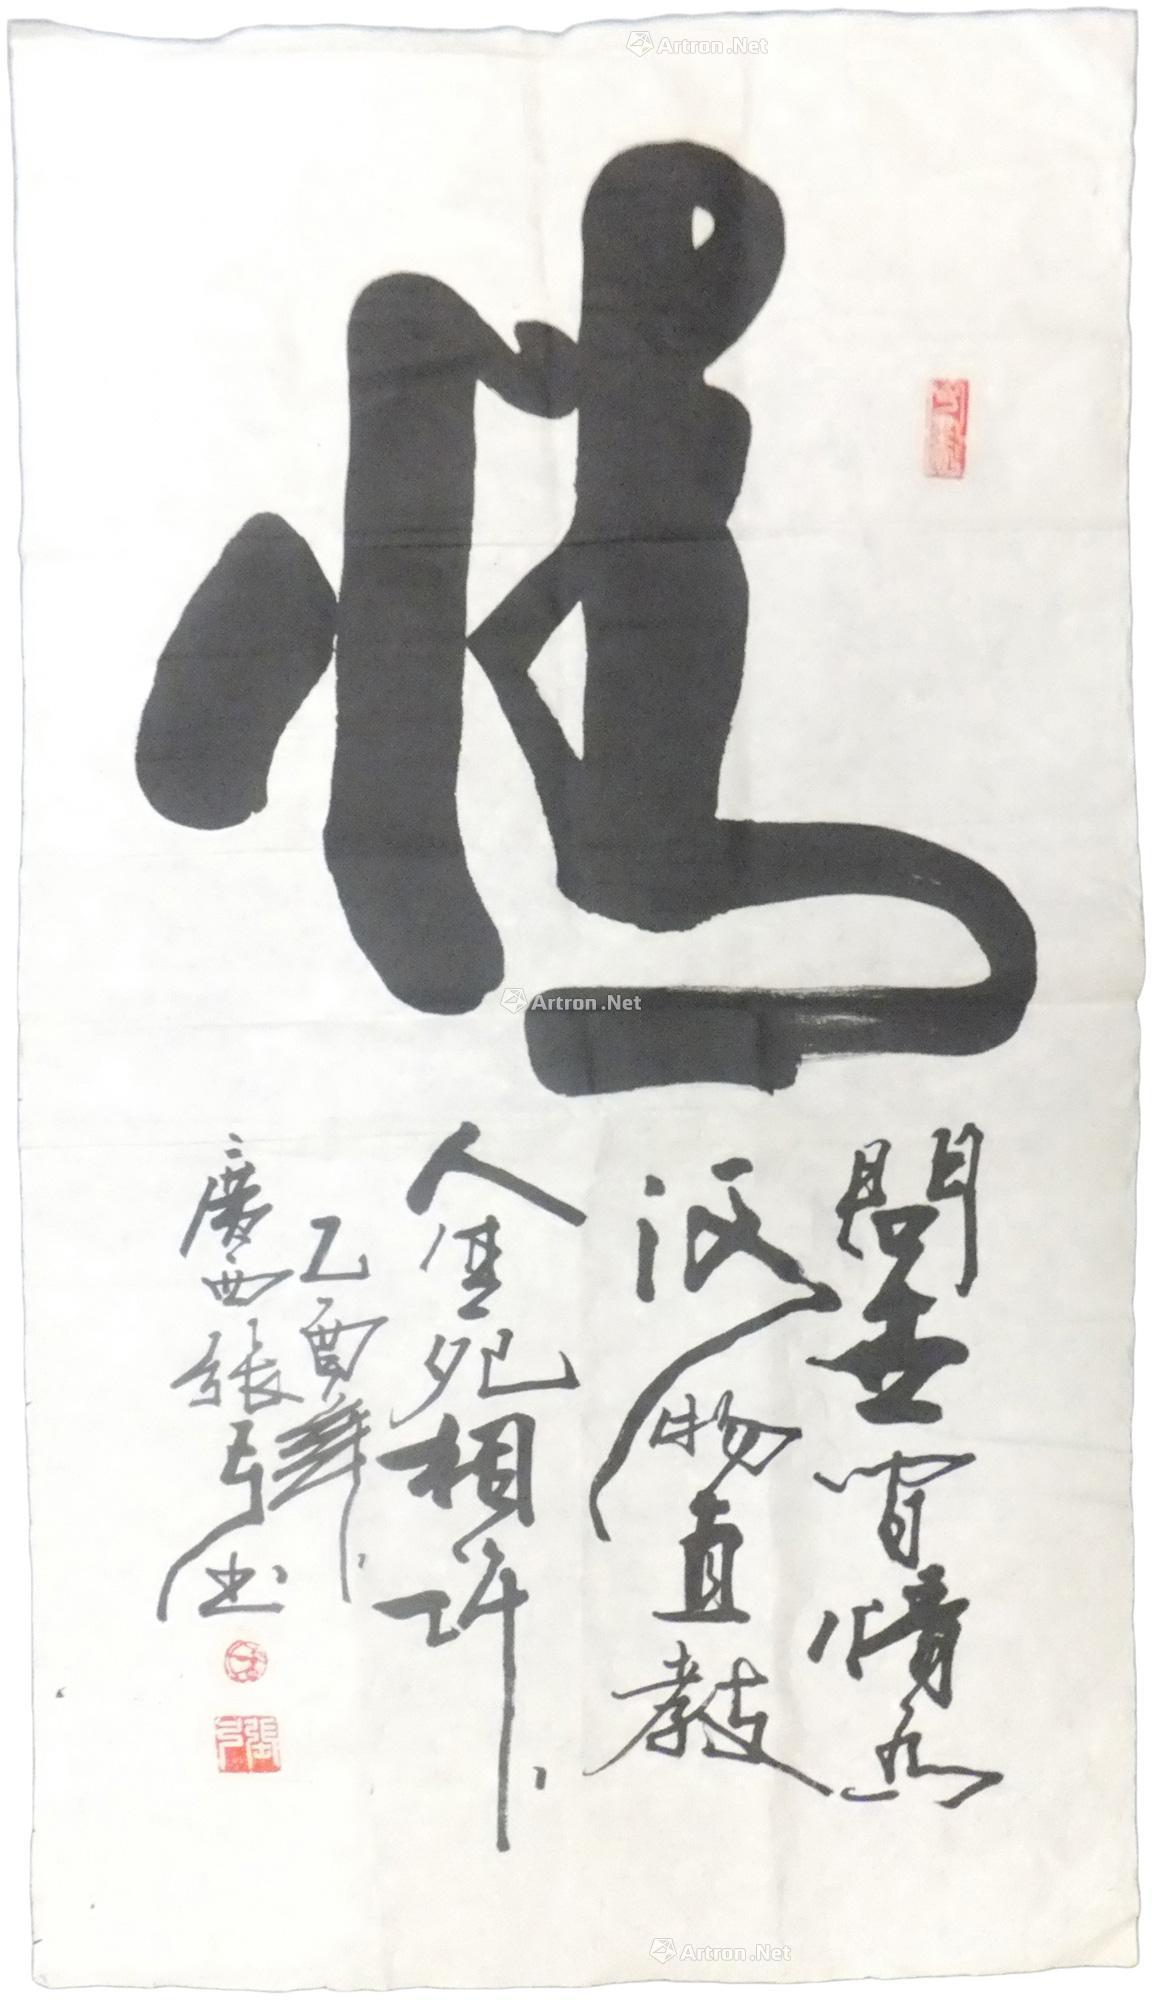 情
問世間情為
何物直教
人生死相許
乙酉年
廣西張弓書
張弓
Artron.Net
Artron.Net
Artron.Net